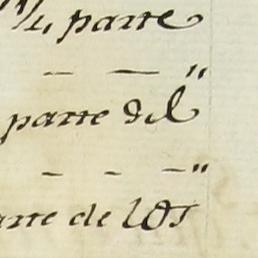 ¼ parte
— — "
parte del
- - — "
parte de los